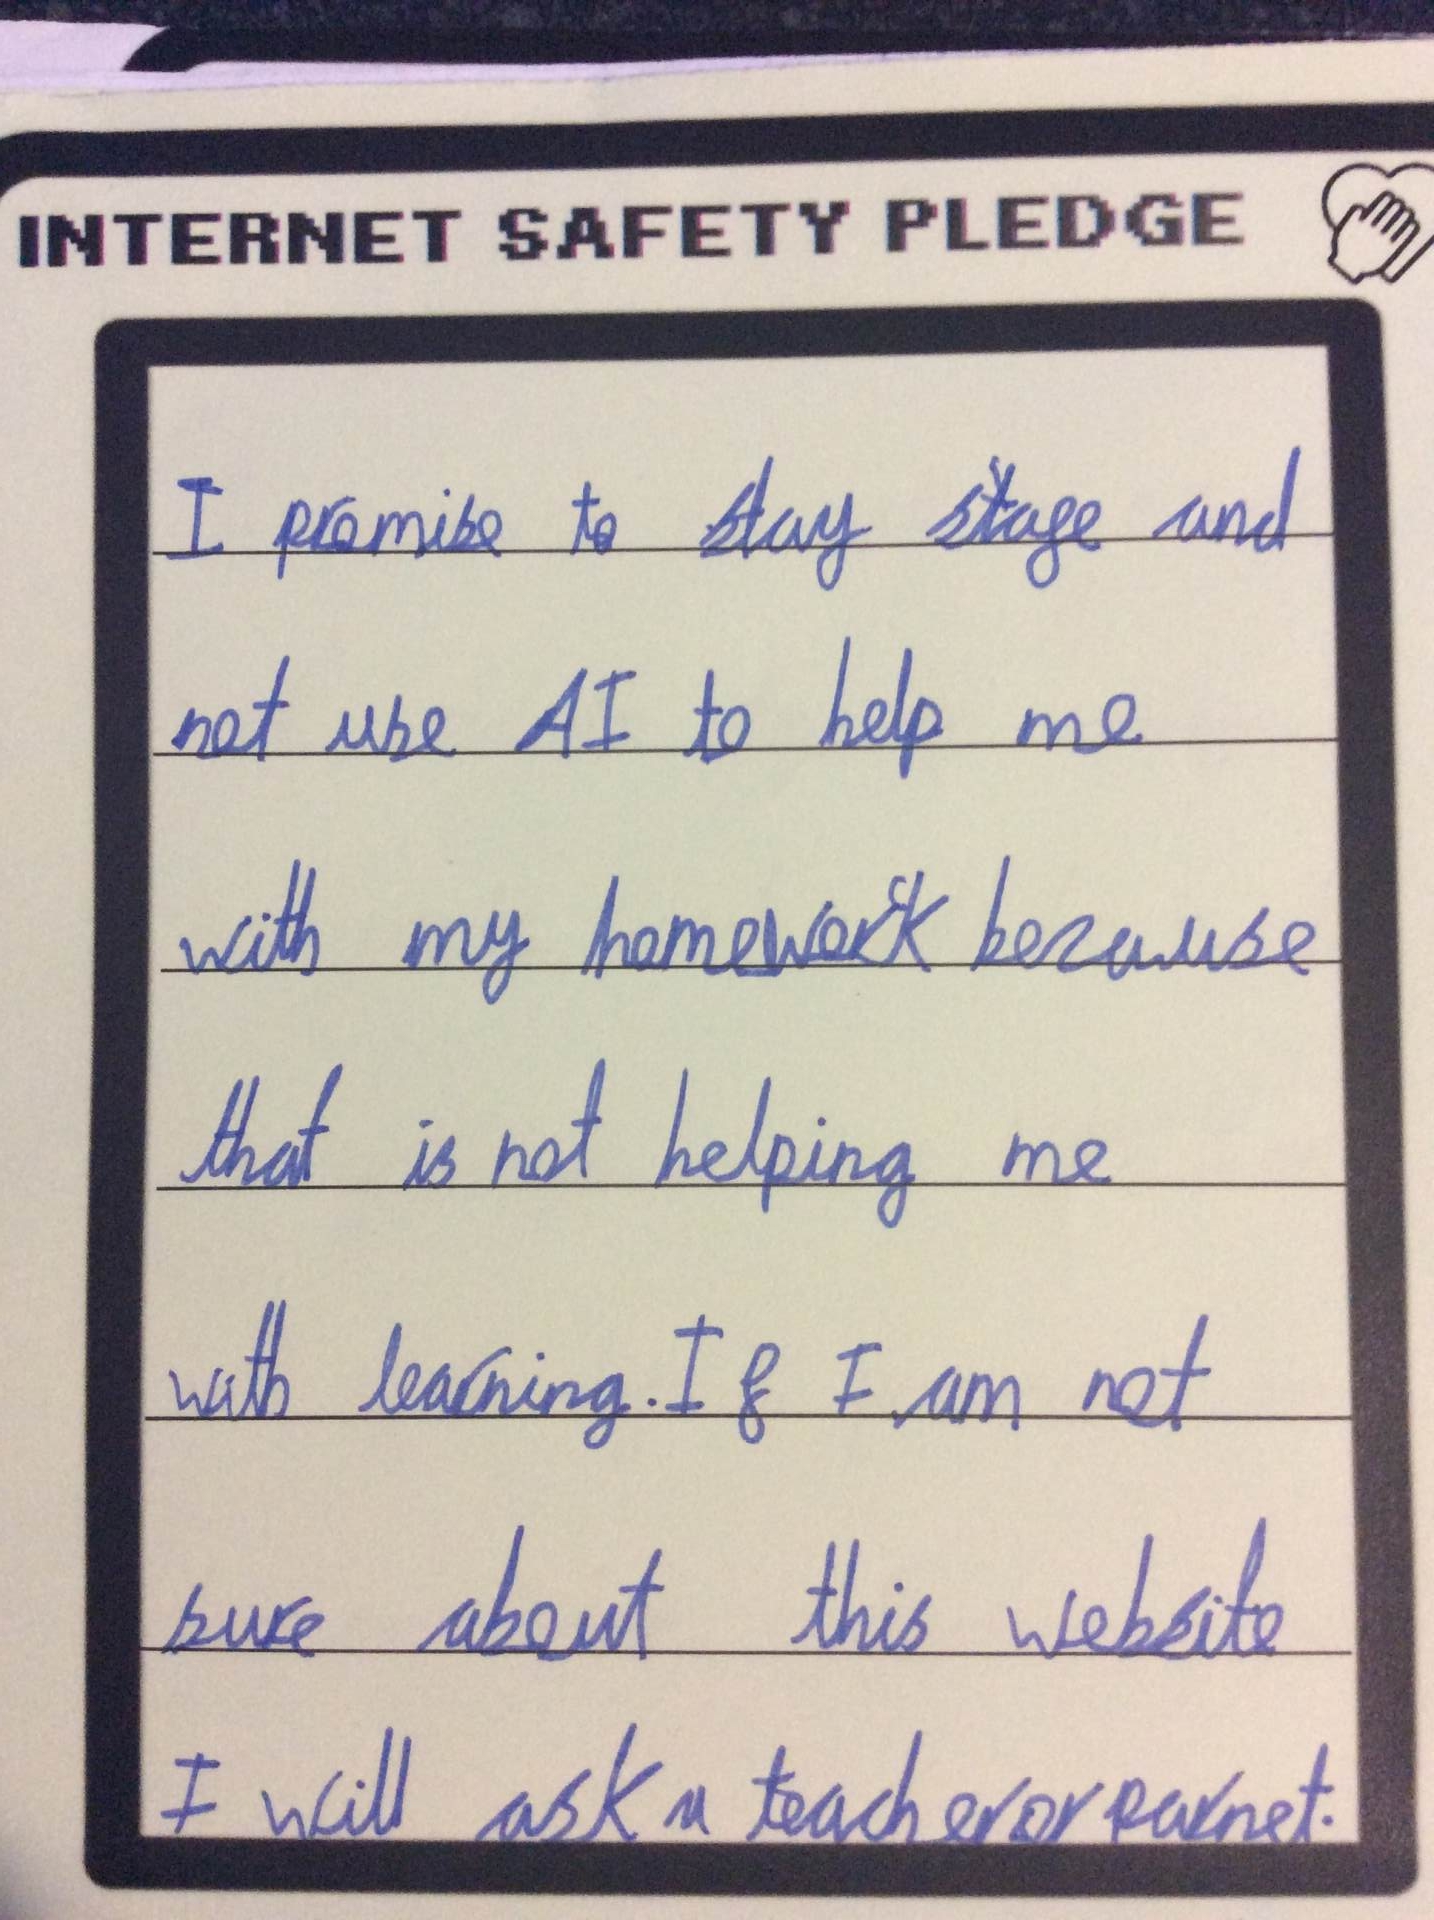 INTERNET SAFETY PLEDGE
I promise to stay stage and
not use AI to help me
with my homework because
that is not helping me
with learning. If I am not
sure about this website
I will ask a teacher or parnet.